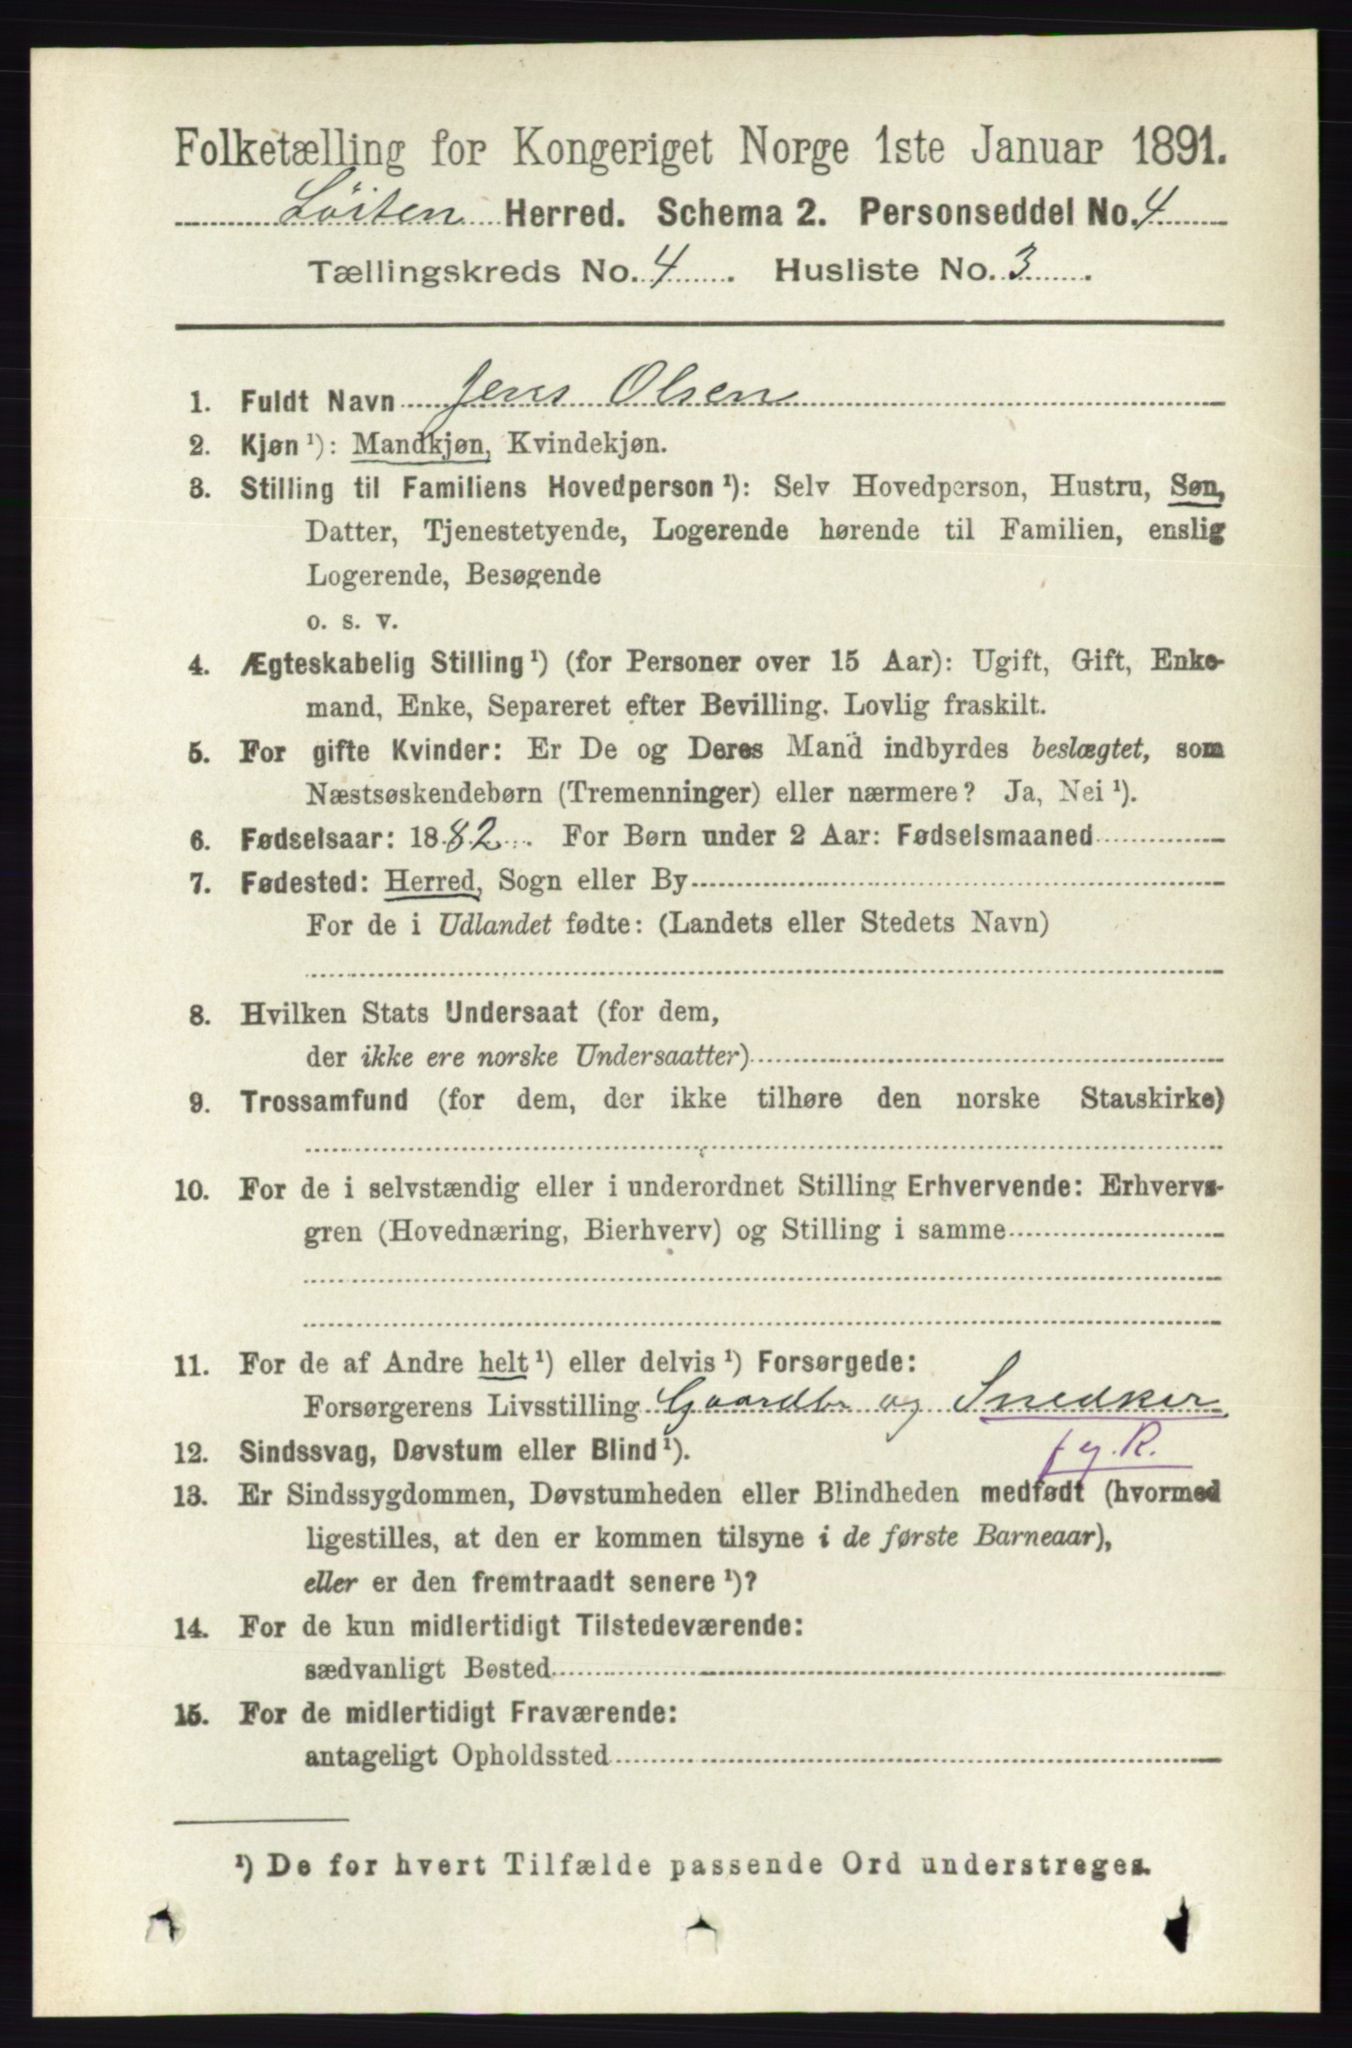 Folketælling for Kongeriget Norge 1ste Januar 1891.
Löiten Herred. Schema 2. Personseddel No. 4
Tællingskreds No. 4 . Husliste No. 3 .
1. Fuldt Navn Jens Olsen
2. Kjøn ¹): Mandkjøn, Kvindekjøn.
3. Stilling til Familiens Hovedperson ¹): Selv Hovedperson, Hustru, Søn,
Datter, Tjenestetyende, Logerende hørende til Familien, enslig
Logerende, Besøgende
o. s. v.
4. Ægteskabelig Stilling ¹) (for Personer over 15 Aar): Ugift, Gift, Enke-
mand, Enke, Separeret efter Bevilling. Lovlig fraskilt.
5. For gifte Kvinder: Er De og Deres Mand indbyrdes beslægtet, som
Næstsøskendebørn (Tremenninger) eller nærmere? Ja, Nei ¹).
6. Fødselsaar: 1882. For Børn under 2 Aar: Fødselsmaaned
7. Fødested: Herred, Sogn eller By
For de i Udlandet fødte: (Landets eller Stedets Navn)
8. Hvilken Stats Undersaat (for dem,
der ikke ere norske Undersaatter)
9. Trossamfund (for dem, der ikke tilhøre den norske Statskirke)
10. For de i selvstændig eller i underordnet Stilling Erhvervende: Erhvervs-
gren (Hovednæring, Bierhverv) og Stilling i samme
11. For de af Andre helt ¹) eller delvis ¹) Forsørgede:
Forsørgerens Livsstilling Gaardbr og Snedker
12. Sindssvag, Døvstum eller Blind ¹). f g. R.
13. Er Sindssygdommen, Døvstumheden eller Blindheden medfødt (hvormed
ligestilles, at den er kommen tilsyne i de første Barneaar),
eller er den fremtraadt senere ¹)?
14. For de kun midlertidigt Tilstedeværende:
sædvanligt Bosted
15. For de midlertidigt Fraværende:
antageligt Opholdssted
¹) De for hvert Tilfælde passende Ord understreges.